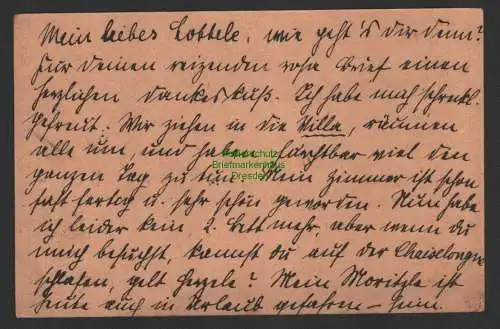 Mein liebes Lottele, wie geht's dir denn?
Für deinen reizenden rosa Brief einen
herzlichen Dankeskuß. Ich habe mich schrekl.
gefreut. Wir ziehen in die Villa, räumen
alle um und haben furchtbar viel den
ganzen Tag zu tun. Mein Zimmer ist schon
fast fertig u. sehr schön geworden. Nun habe
ich leider kein 2. Bett mehr, aber wenn du
mich besuchst, kannst du auf der Chaiselongue
schlafen, gelt Herzele? Mein Moritzle ist
heute auch in Urlaub gefahren – heim.
Philaschutz
Briefmarkenhaus
Dresden